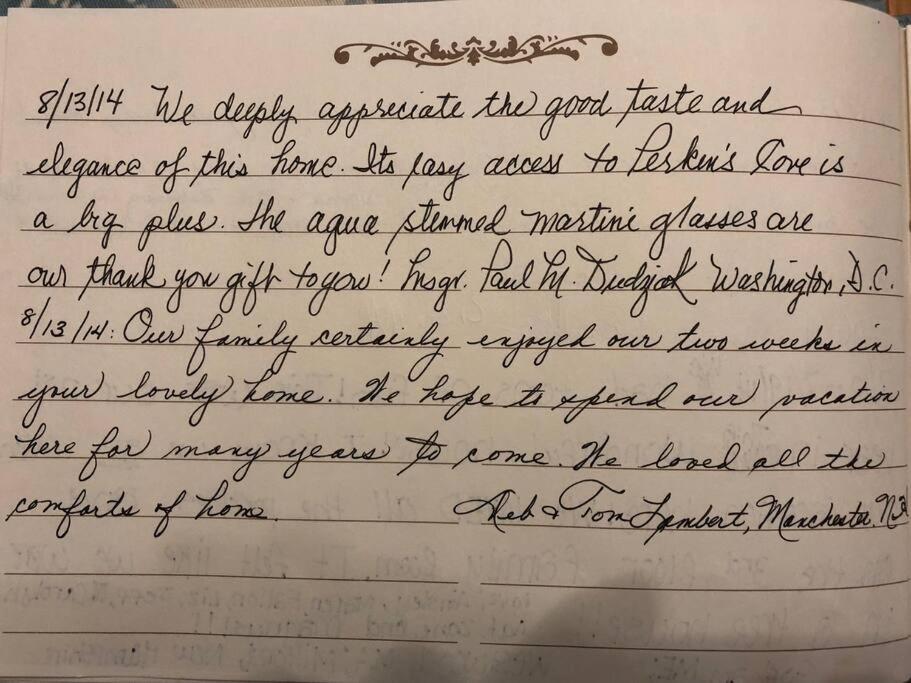 8/13/14 We deeply appreciate the good taste and
elegance of this home. Its easy access to Perkin's Cove is
a big plus. The aqua stemmed martini glasses are
our thank you gift to you! Msgr. Paul M. Dudziak Washington, D.C.
8/13/14: Our family certainly enjoyed our two weeks in
your lovely home. We hope to spend our vacation
here for many years to come. We loved all the
comforts of home. Deb & Tom Lambert, Manchester,